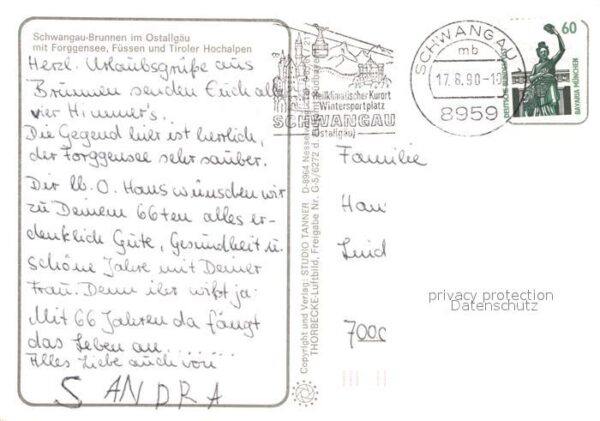 Schwangau-Brunnen im Ostallgäu
mit Forggensee, Füssen und Tiroler Hochalpen
Herzl. Urlaubsgrüße aus
Brunnen senden Euch alle
vier Himmer's.
Die Gegend hier ist herrlich,
der Forggensee sehr sauber.
Dir lb. O. Hans wünschen wir
zu Deinem 66ten alles er-
denklich Gute, Gesundheit u.
schöne Jahre mit Deiner
Frau. Denn ihr wißt ja:
Mit 66 Jahren da fängt
das Leben an.......
Alles Liebe auch von
SANDRA
Heilklimatischer Kurort
Wintersportplatz
SCHWANGAU
(Ostallgäu)
SCHWANGAU
mb
17.8.90-10
8959
60
DEUTSCHE BUNDESPOST
BAVARIA MÜNCHEN
Copyright und Verlag: STUDIO TANNER D-8964 Nesselwang
THORBECKE-Luftbild, Freigabe Nr. G-5/6272 d.
Familie
Han
Luid
7000
privacy protection
Datenschutz